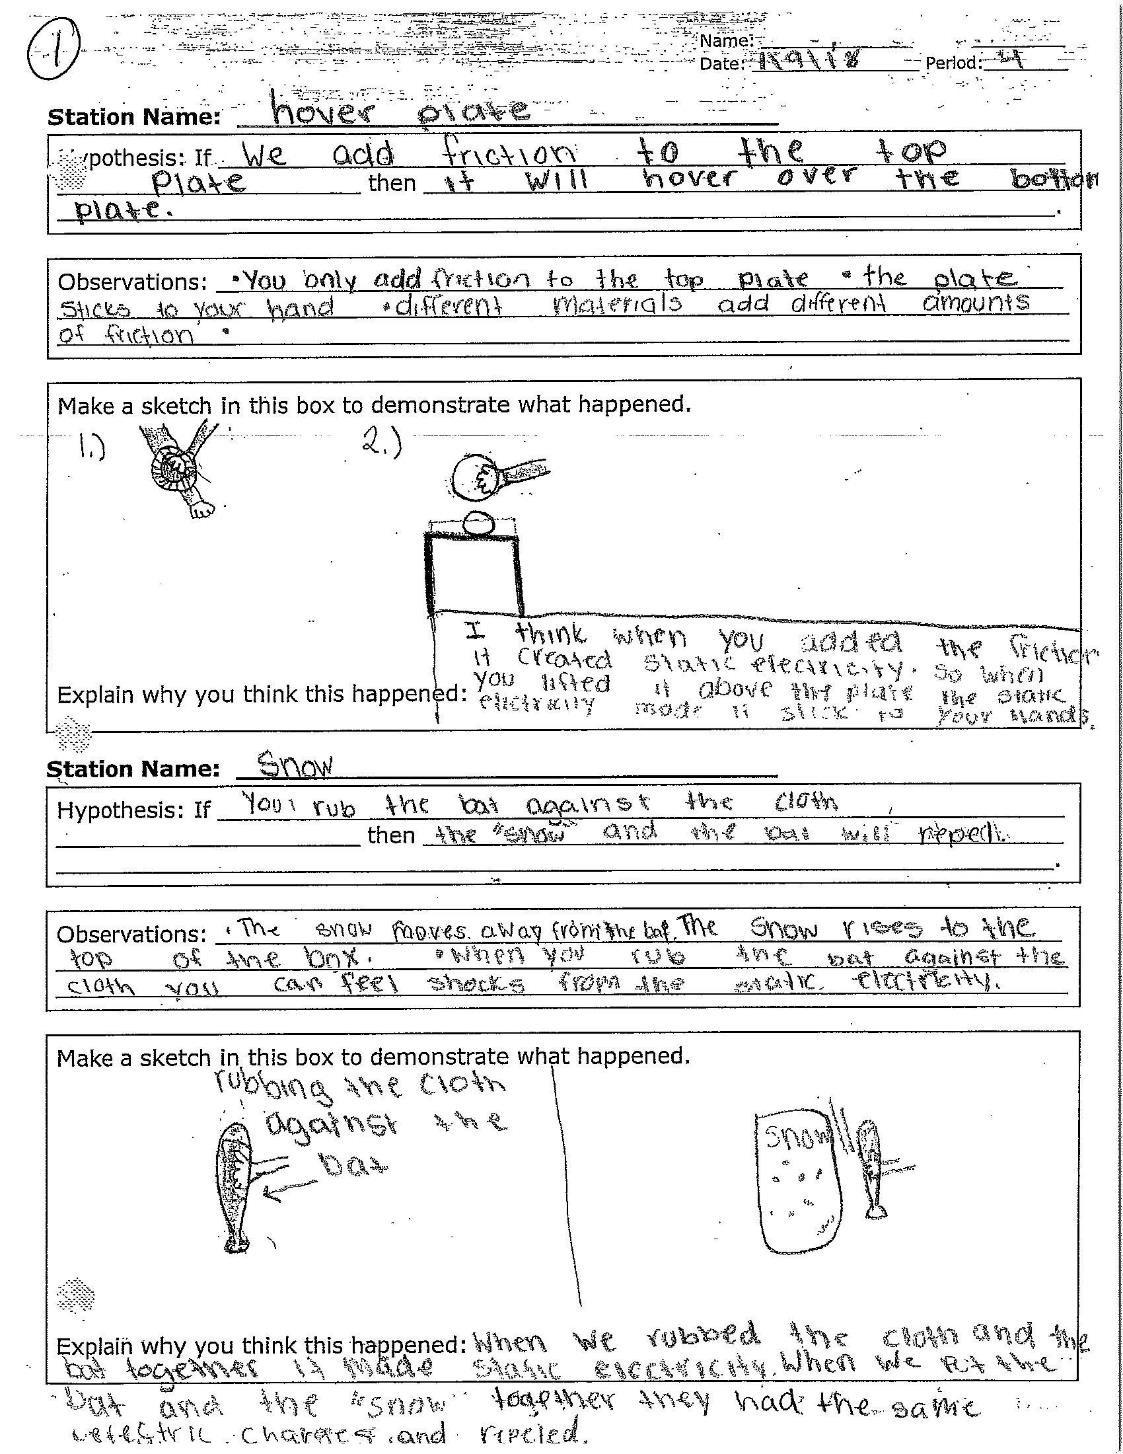 1
Name:
Date: 1/9/18 Period: 4
Station Name: hover plate
ypothesis: If We add friction to the top
Plate then it will hover over the botton
plate.
Observations: •You only add friction to the top plate • the plate
sticks to your hand •different materials add different amounts
of friction •
Make a sketch in this box to demonstrate what happened.
1.) 2.)
I think when you added the friction
it created static electricity. So when
you lifted it above the plate the static
Explain why you think this happened:
electricity made it stick to your hands.
Station Name: Snow
Hypothesis: If You rub the bat against the cloth
then the "snow" and the bat will repell.
Observations: • The snow moves away from the bat. The snow rises to the
top of the box. •When you rub the bat against the
cloth you can feel shocks from the static electricity.
Make a sketch in this box to demonstrate what happened.
rubbing the cloth
against the
bat
snow
Explain why you think this happened: When we rubbed the cloth and the
bat together it made static electricity. When we put the
bat and the "snow" together they had the same
charges and repeled.